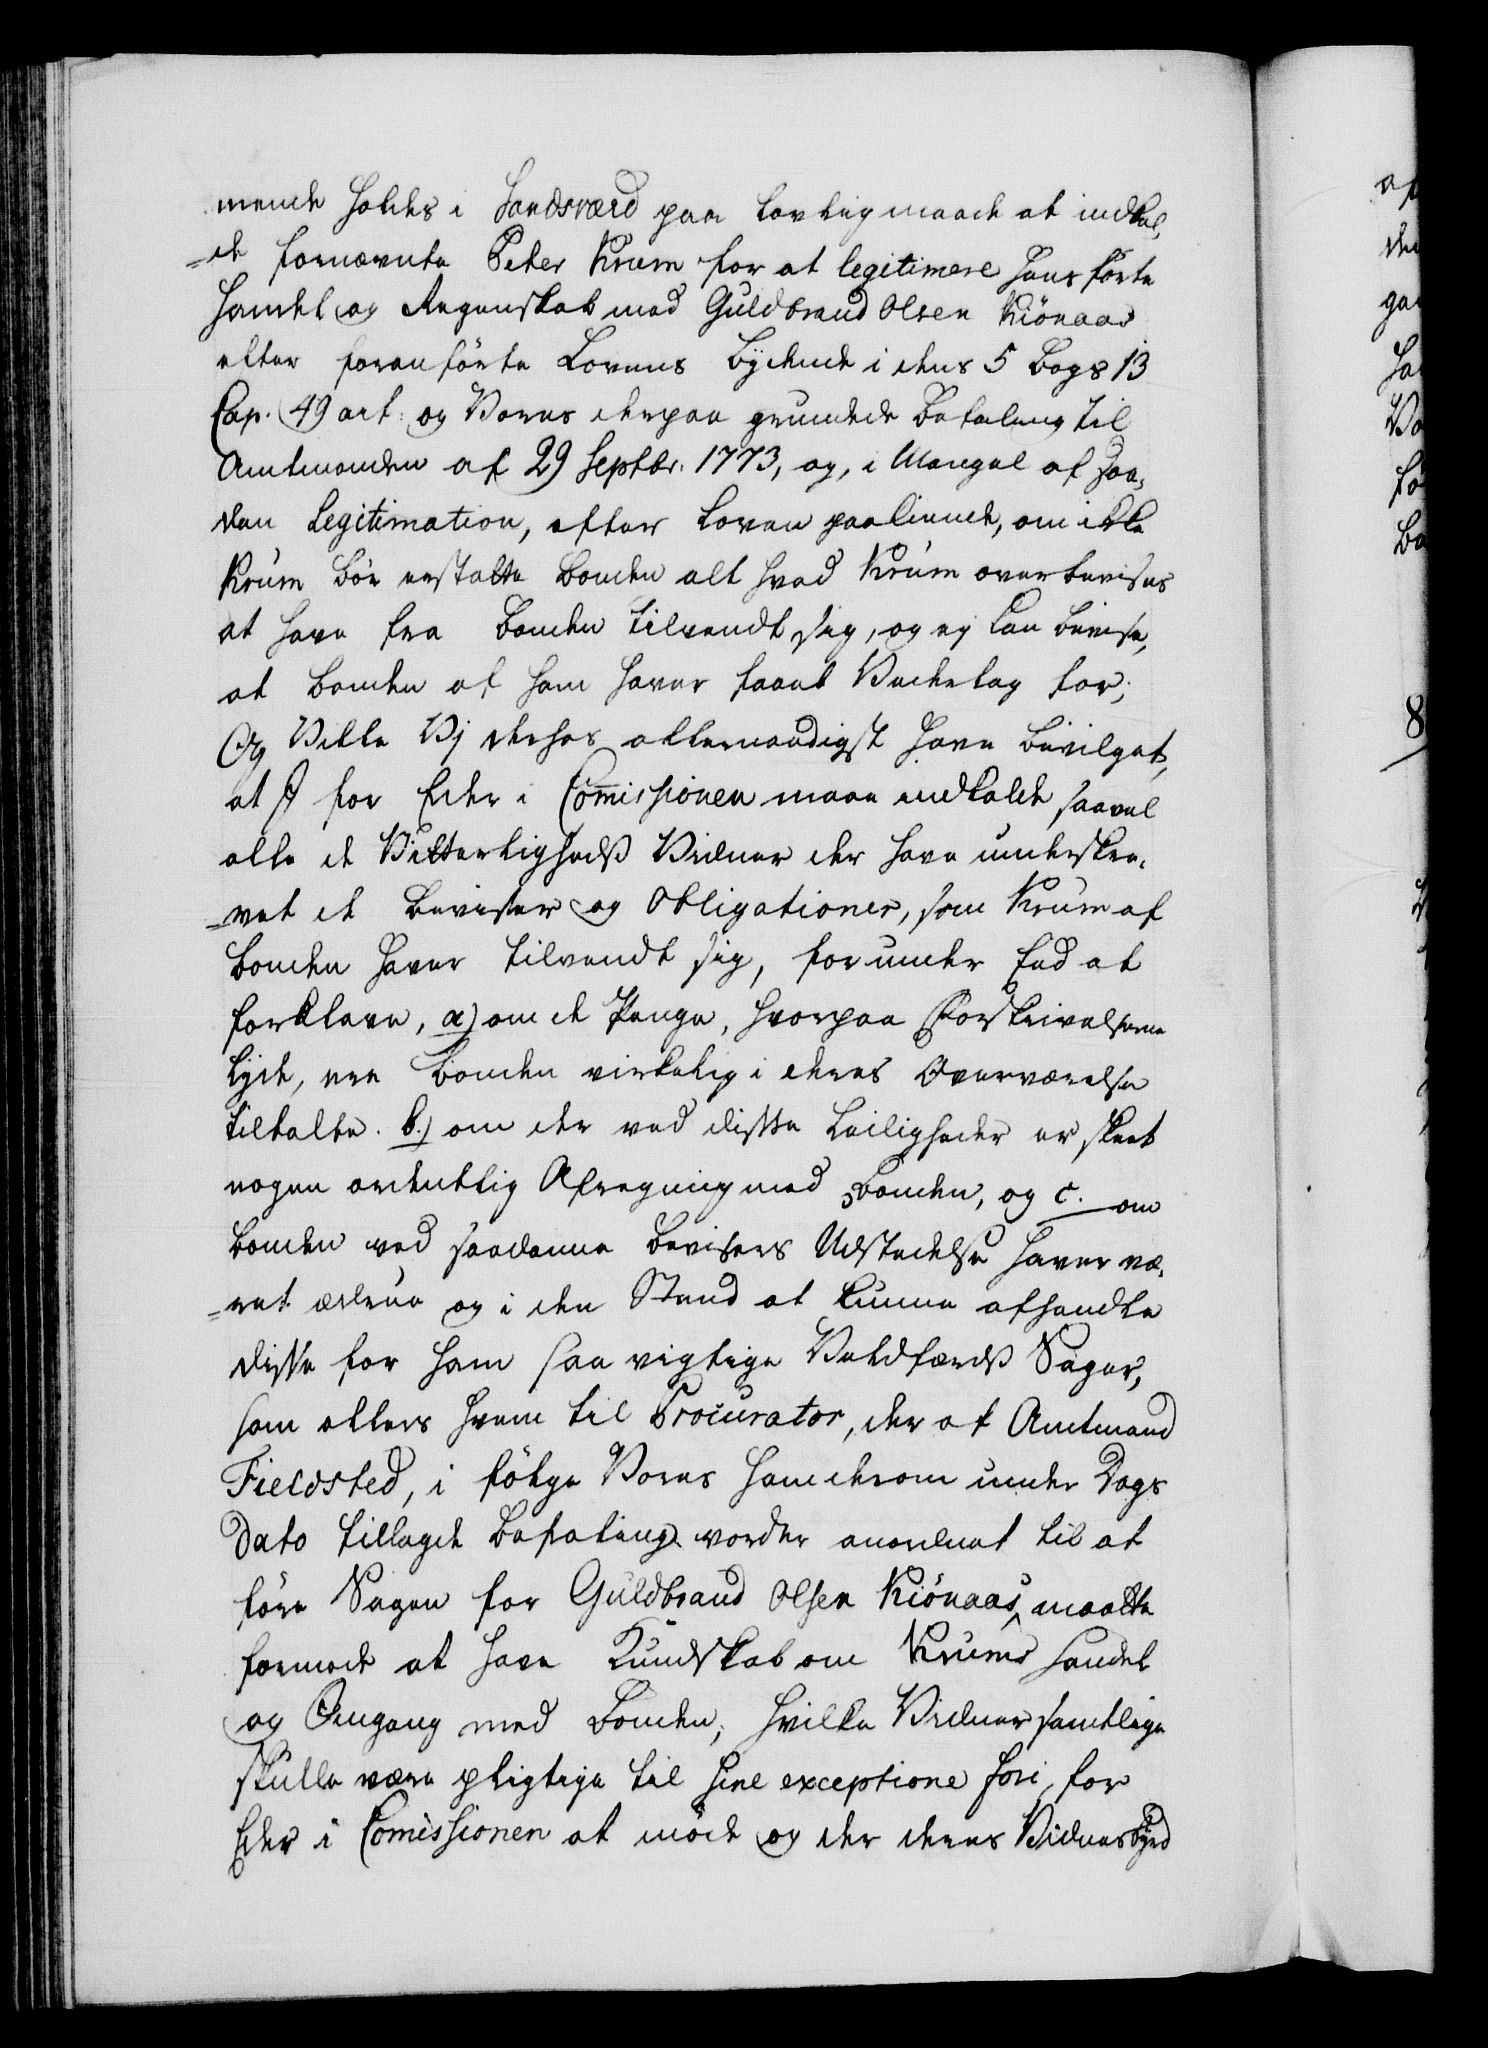 mende holdes i Sandsværd paa lovlig maade at indkal,
=de fornævnte Peter Krum for at legitimere hans førte
Handel og Regenskab med Guldbrand Olsen Kiönaas
efter foranførte Lovens bydende i dens 5 Bogs 13
Cap. 49 art: og Vores derpaa grundede Befaling til
Amtmanden af 29 Septbr. 1773, og, i Mangel af saa,
dan Legitimation, efter Loven paakiende, om ikke
Krum bør erstatte Bonden alt hvad Krum overbevises
at have fra Bonden tilvendt sig, og ej kan bevise,
at Bonden af ham haver faaet Vederlag for;
Og Ville Vj derhos allernaadigst have bevilget,
at I for Eder i Comissionen maae indkalde saavel
alle de Vitterligheds Vidner der have underskre,
=vet de Beviser og Obligationer, som Krum af
Bonden haver tilvendt sig, for under Eed at
forklare, a) om de Penge, hvorpaa Forskrivelserne
lyde, ere Bonden virkelig i deres Overværelse
tiltalte. b.) om der ved disse Leiligheder er skeet
nogen ordentlig Afregning med Bonden, og c. om
Bonden ved saadanne Bevisers Udstedelse haver væ,
=ret ædrue og i den Stand at kunne afhandle
disse for ham saa vigtige Velfærds Sager,
som ellers hvem til Procurator, der af Amtmand
Fieldsted, i følge Vores ham derom under Dags
Dato tillagde Befaling vorder anordnet til at
føre Sagen for Guldbrand Olsen Kiönaas, maatte
formode at have Kundskab om Krums Handel
og Omgang med Bonden; hvilke Vidner samtlige
skulle være pligtige til sine exceptione fori, for
Eder i Comissionen at møde og der deres Vidnesbyrd